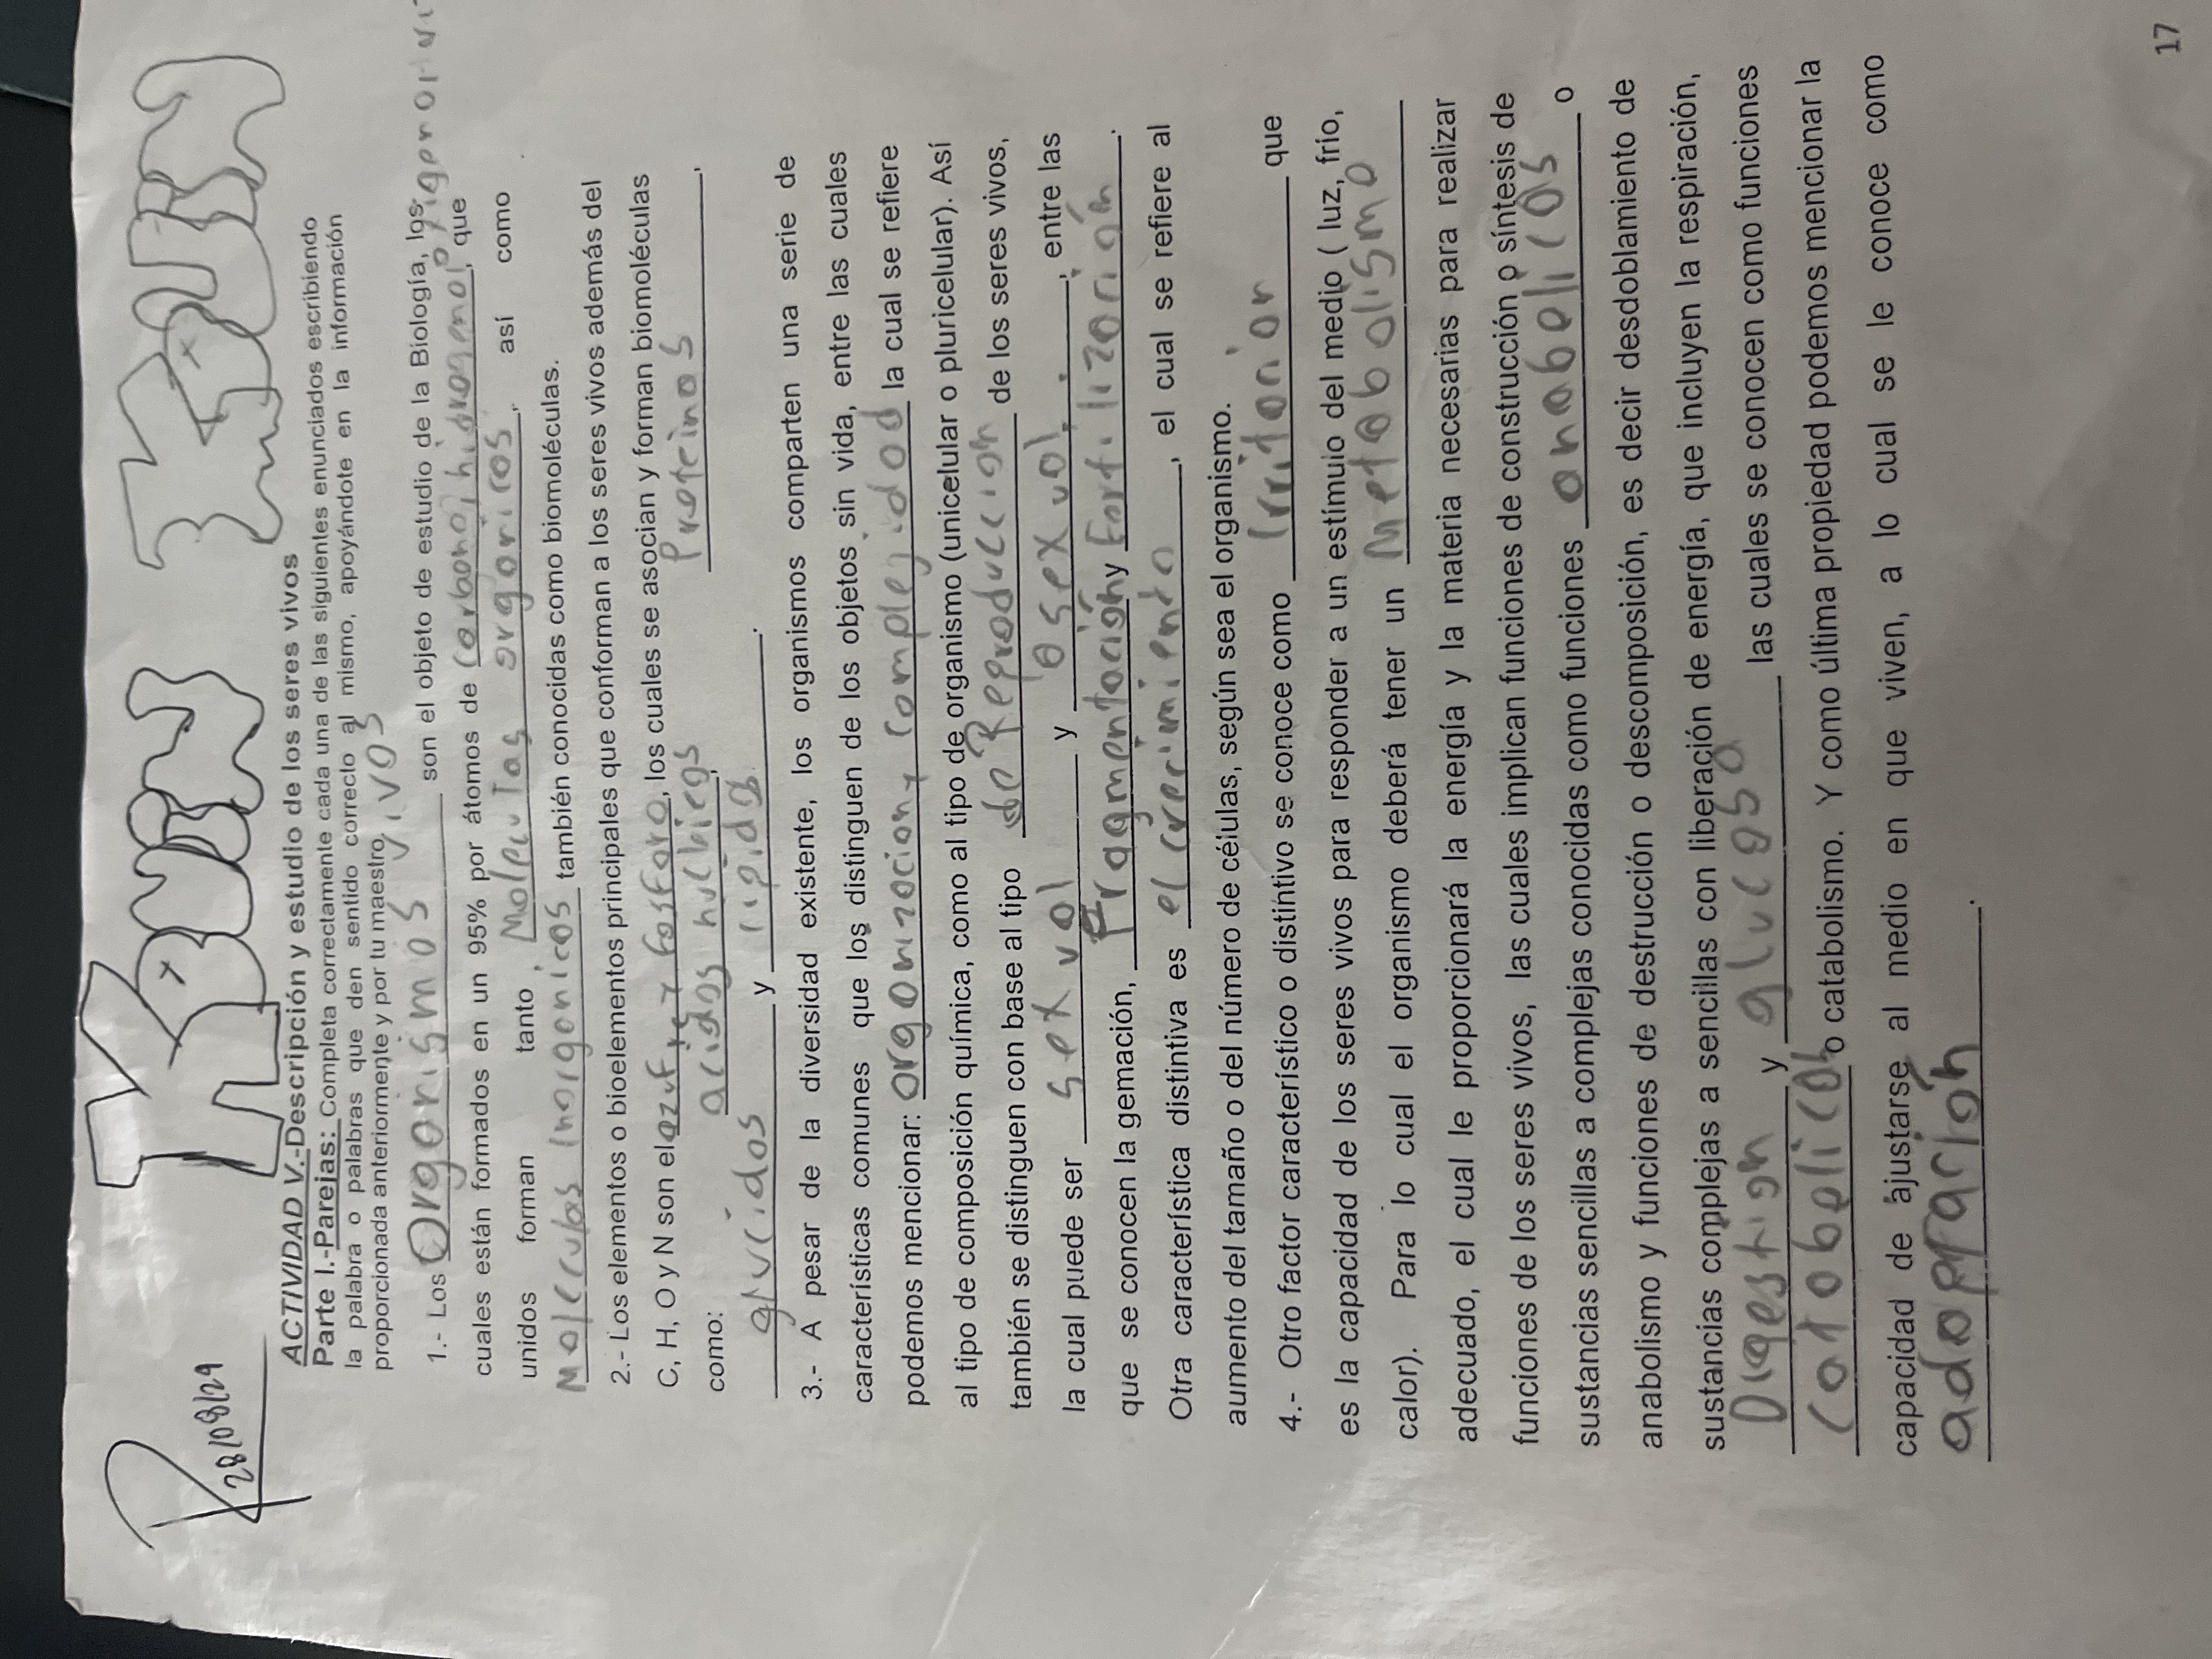 28/08/29
ACTIVIDAD V.-Descripción y estudio de los seres vivos
Parte I.-Parejas: Completa correctamente cada una de las siguientes enunciados escribiendo
la palabra o palabras que den sentido correcto al mismo, apoyándote en la información
proporcionada anteriormente y por tu maestro.
1.- Los Organismos vivos son el objeto de estudio de la Biología, los
cuales están formados en un 95% por átomos de carbono, hidrogeno, que
unidos forman tanto Moleculas organicas, así como
Moleculas inorganicas también conocidas como biomoléculas.
2.- Los elementos o bioelementos principales que conforman a los seres vivos además del
C, H, O y N son el azufre y fosforo, los cuales se asocian y forman biomoléculas
como: acidos nucleicos, Proteinas,
glucidos y lipidos.
3.- A pesar de la diversidad existente, los organismos comparten una serie de
características comunes que los distinguen de los objetos sin vida, entre las cuales
podemos mencionar: organizacion y complejidad la cual se refiere
al tipo de composición química, como al tipo de organismo (unicelular o pluricelular). Así
también se distinguen con base al tipo de Reproduccion de los seres vivos,
la cual puede ser sexual y asexual, entre las
que se conocen la gemación, Fragmentación y Fertilización.
Otra característica distintiva es el crecimiento, el cual se refiere al
aumento del tamaño o del número de células, según sea el organismo.
4.- Otro factor característico o distintivo se conoce como que
es la capacidad de los seres vivos para responder a un estímulo del medio ( luz, frio,
calor). Para lo cual el organismo deberá tener un Metabolismo
adecuado, el cual le proporcionará la energía y la materia necesarias para realizar
funciones de los seres vivos, las cuales implican funciones de construcción o síntesis de
sustancias sencillas a complejas conocidas como funciones anabelicas o
anabolismo y funciones de destrucción o descomposición, es decir desdoblamiento de
sustancias complejas a sencillas con liberación de energía, que incluyen la respiración,
Digestion y glucosa las cuales se conocen como funciones
catabelicas o catabolismo. Y como última propiedad podemos mencionar la
capacidad de ajustarse al medio en que viven, a lo cual se le conoce como
adaptación.
17